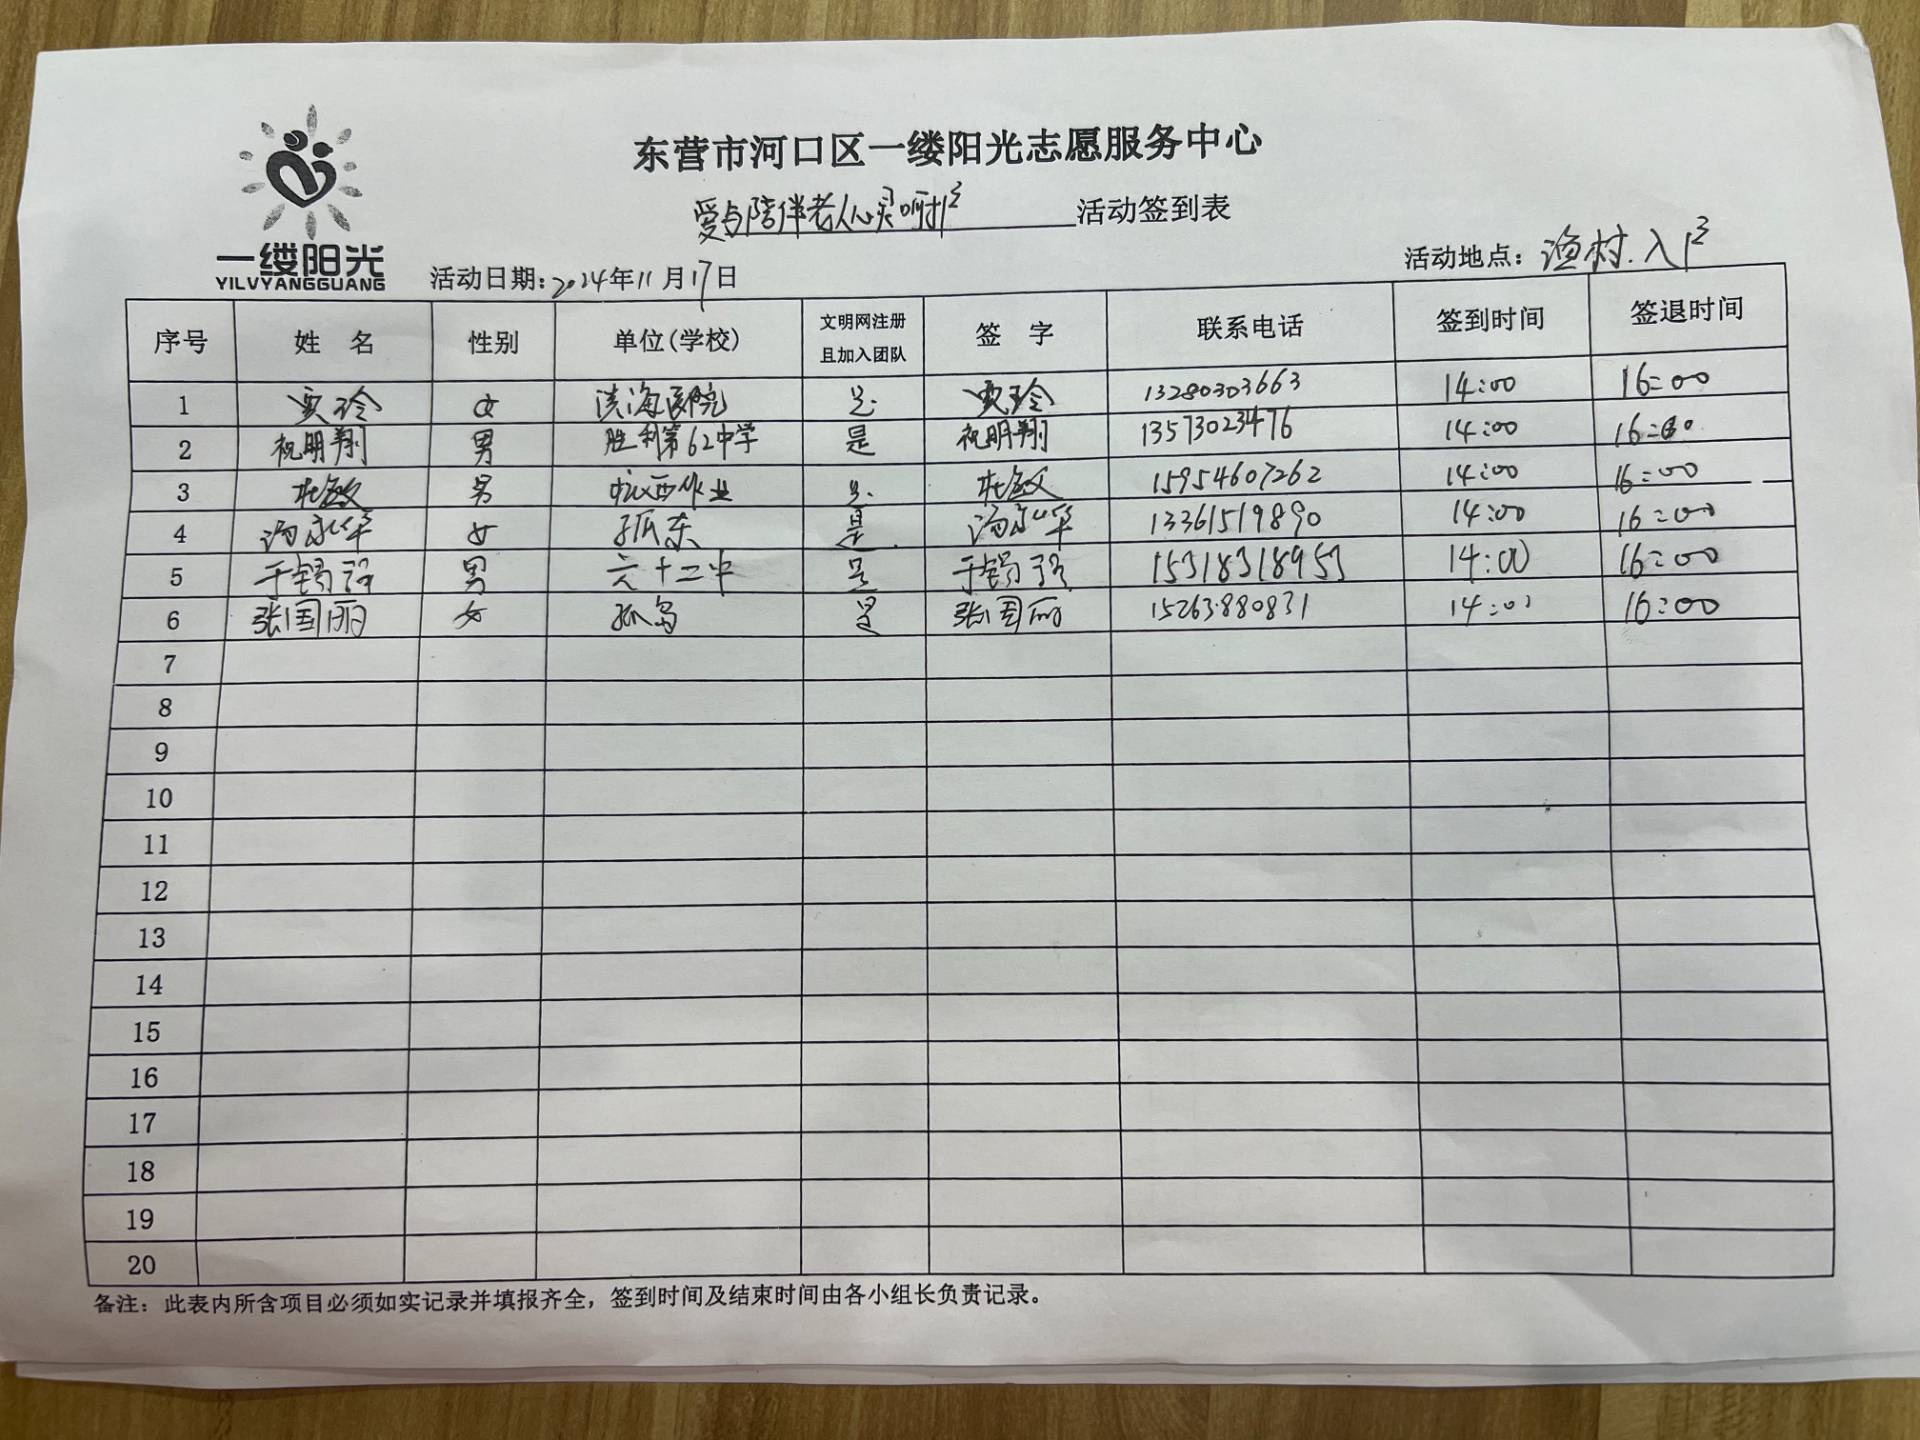 东营市河口区一缕阳光志愿服务中心
爱与陪伴老人心灵呵护 活动签到表
一缕阳光
YILVYANGGUANG
活动日期：2024年11月17日
活动地点：渔村.入户
序号 姓名 性别 单位(学校) 文明网注册且加入团队 签字 联系电话 签到时间 签退时间
1 贾玲 女 滨海医院 是 贾玲 13280303663 14:00 16:00
2 祝明翔 男 胜利第62中学 是 祝明翔 13573023476 14:00 16:00
3 杜敏 男 作业 是 杜敏 15954607262 14:00 16:00
4 汤永华 女 孤东 是 汤永华 13361519890 14:00 16:00
5 于锡强 男 六十二中 是 于锡强 15318318953 14:00 16:00
6 张国丽 女 孤岛 是 张国丽 15263880831 14:00 16:00
7
8
9
10
11
12
13
14
15
16
17
18
19
20
备注：此表内所含项目必须如实记录并填报齐全，签到时间及结束时间由各小组长负责记录。